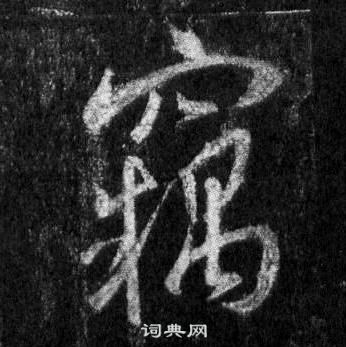 竊
词典网